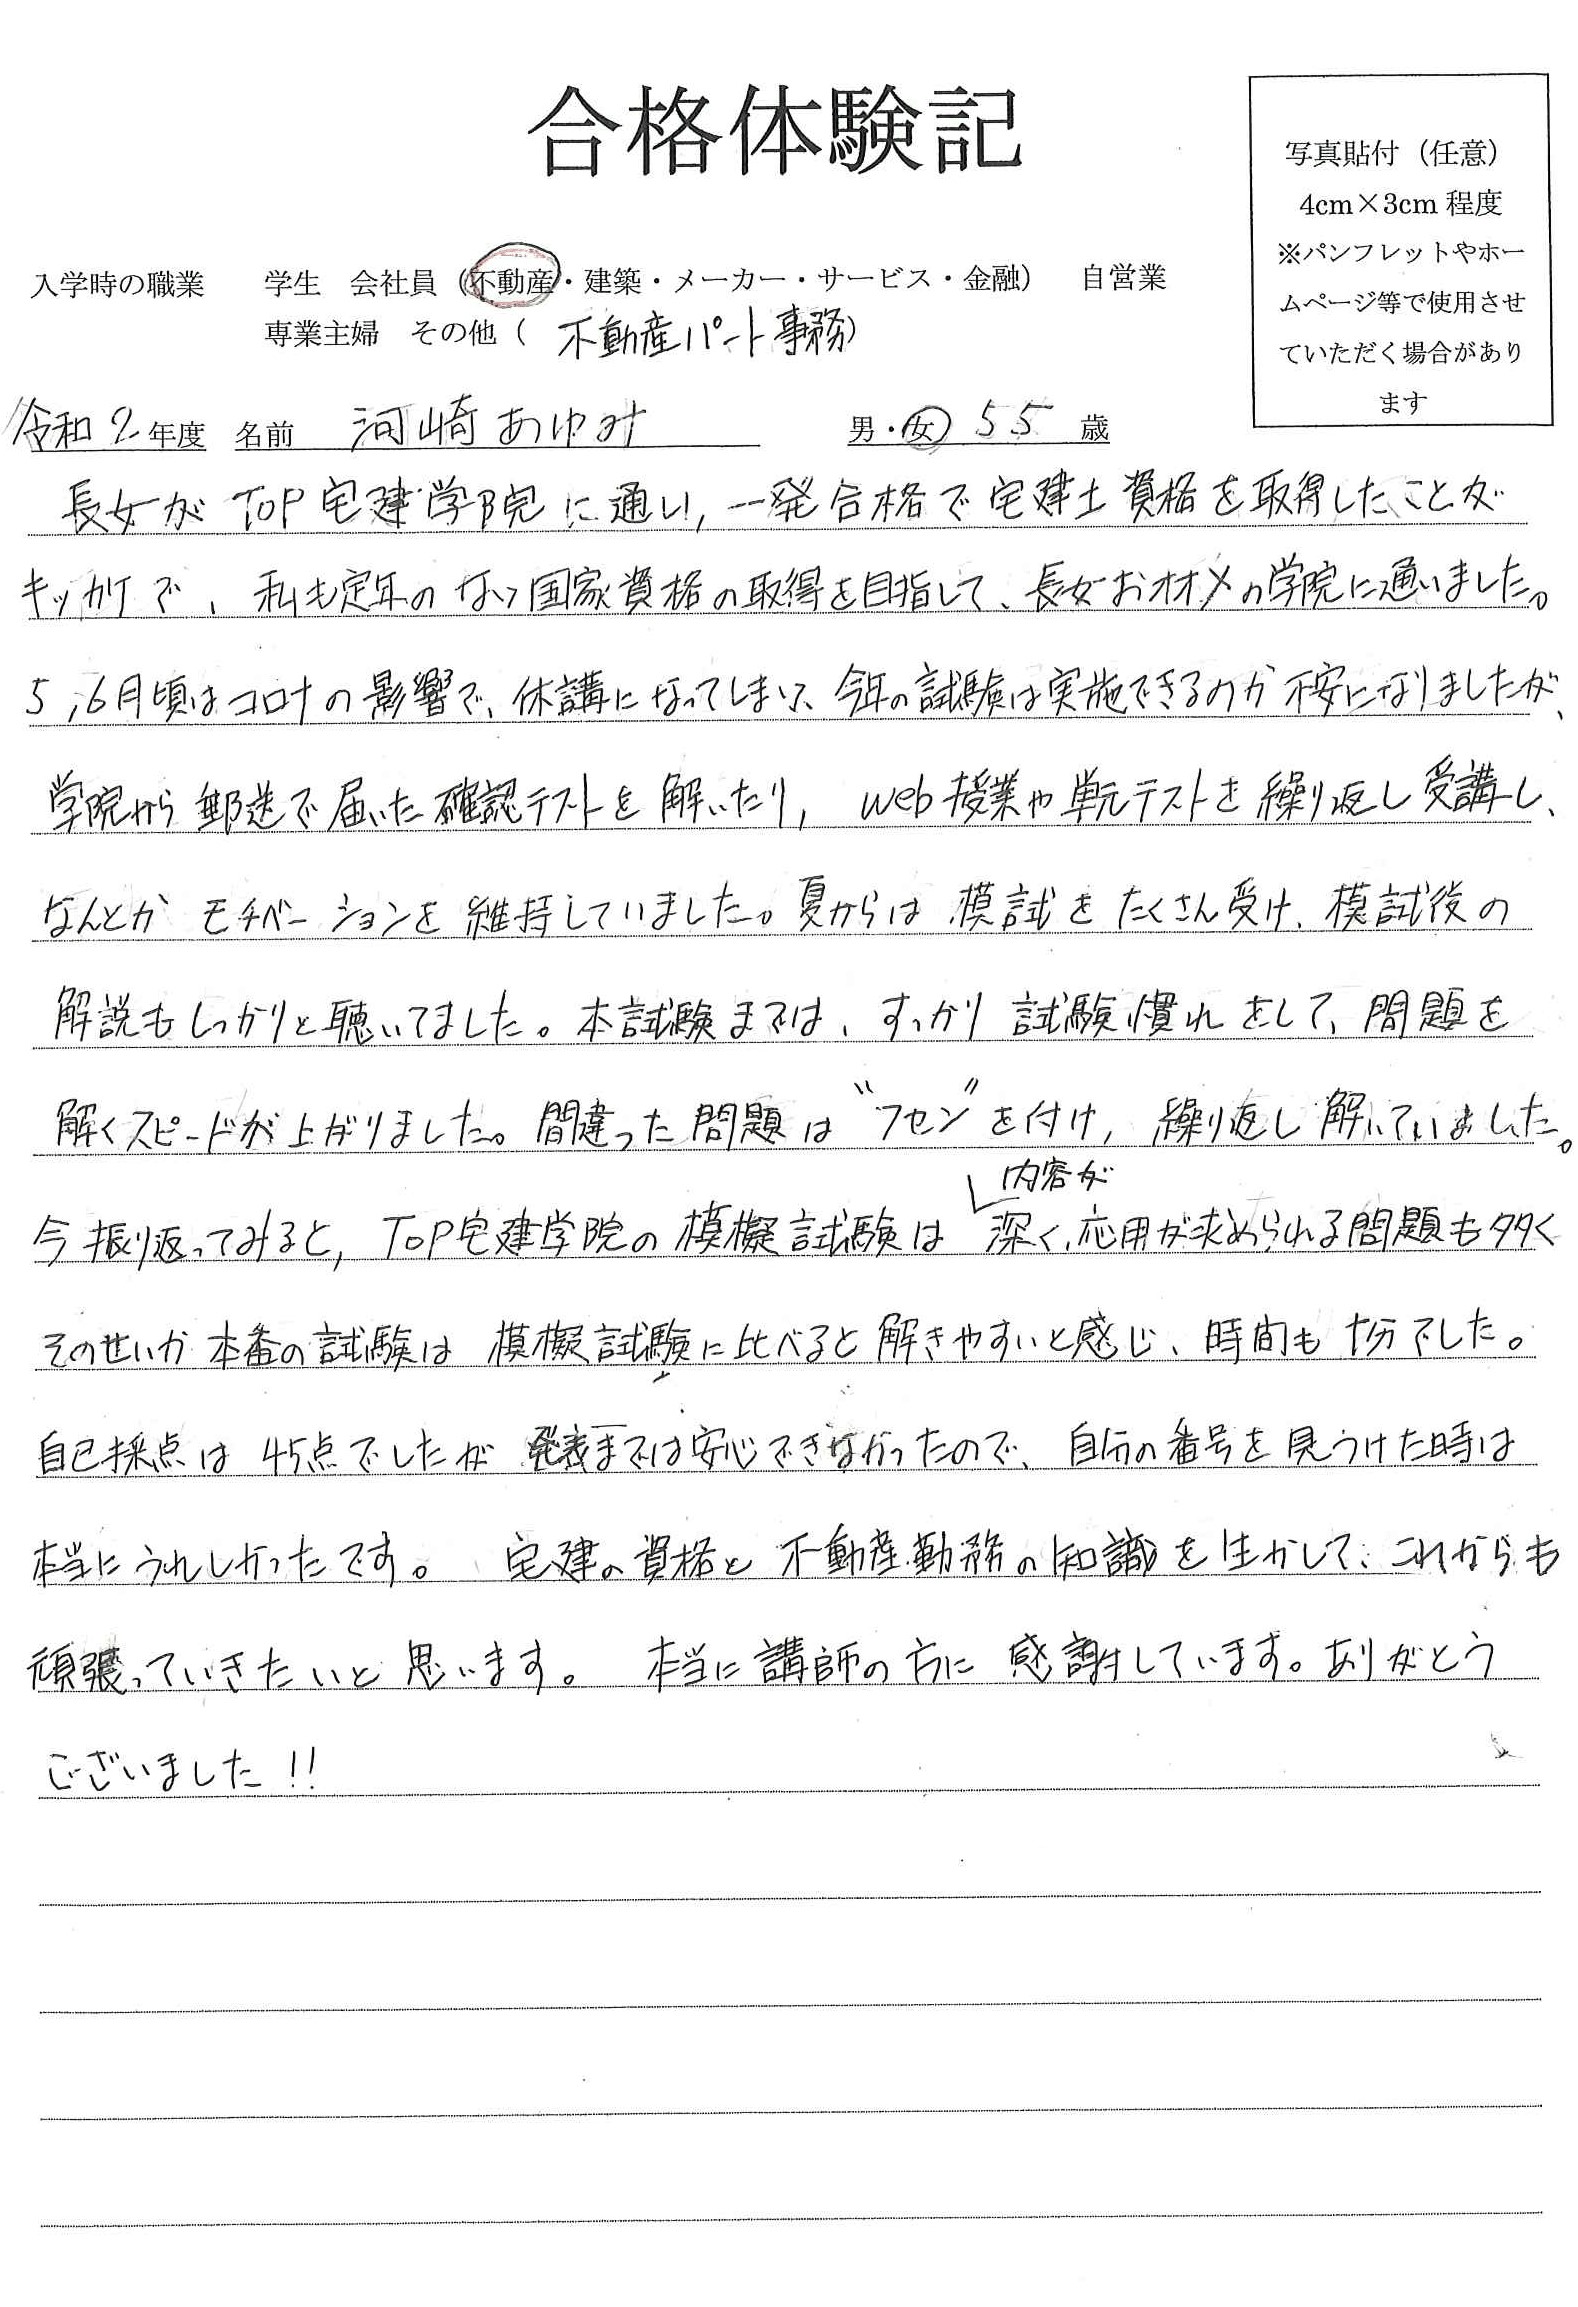 合格体験記
写真貼付（任意）
4cm×3cm 程度
※パンフレットやホー
ムページ等で使用させ
ていただく場合があり
ます
入学時の職業 学生 会社員（不動産・建築・メーカー・サービス・金融） 自営業
専業主婦 その他（ 不動産パート事務）
令和2年度 名前 河崎あゆみ 男・女 55 歳
長女が TOP宅建学院に通い、一発合格で宅建士資格を取得したことが
キッカケで、私も定年のない国家資格の取得を目指して、長女おススメの学院に通いました。
5,6月頃はコロナの影響で、休講になってしまい、今年の試験は実施できるのか不安になりましたが、
学院から郵送で届いた確認テストを解いたり、web授業や単元テストを繰り返し受講し、
なんとか モチベーションを維持していました。夏からは模試をたくさん受け、模試後の
解説もしっかりと聴いてました。本試験までは、すっかり試験慣れをして、問題を
解くスピードが上がりました。間違った問題は"フセン"を付け、繰り返し解いていました。
今振り返ってみると、TOP宅建学院の模擬試験は内容が深く、応用が求められる問題も多く
そのせいか本番の試験は模擬試験に比べると解きやすいと感じ、時間も十分でした。
自己採点は45点でしたが発表までは安心できなかったので、自分の番号を見つけた時は
本当にうれしかったです。 宅建の資格と不動産勤務の知識を生かして、これからも
頑張っていきたいと思います。 本当に講師の方に感謝しています。ありがとう
ございました!!